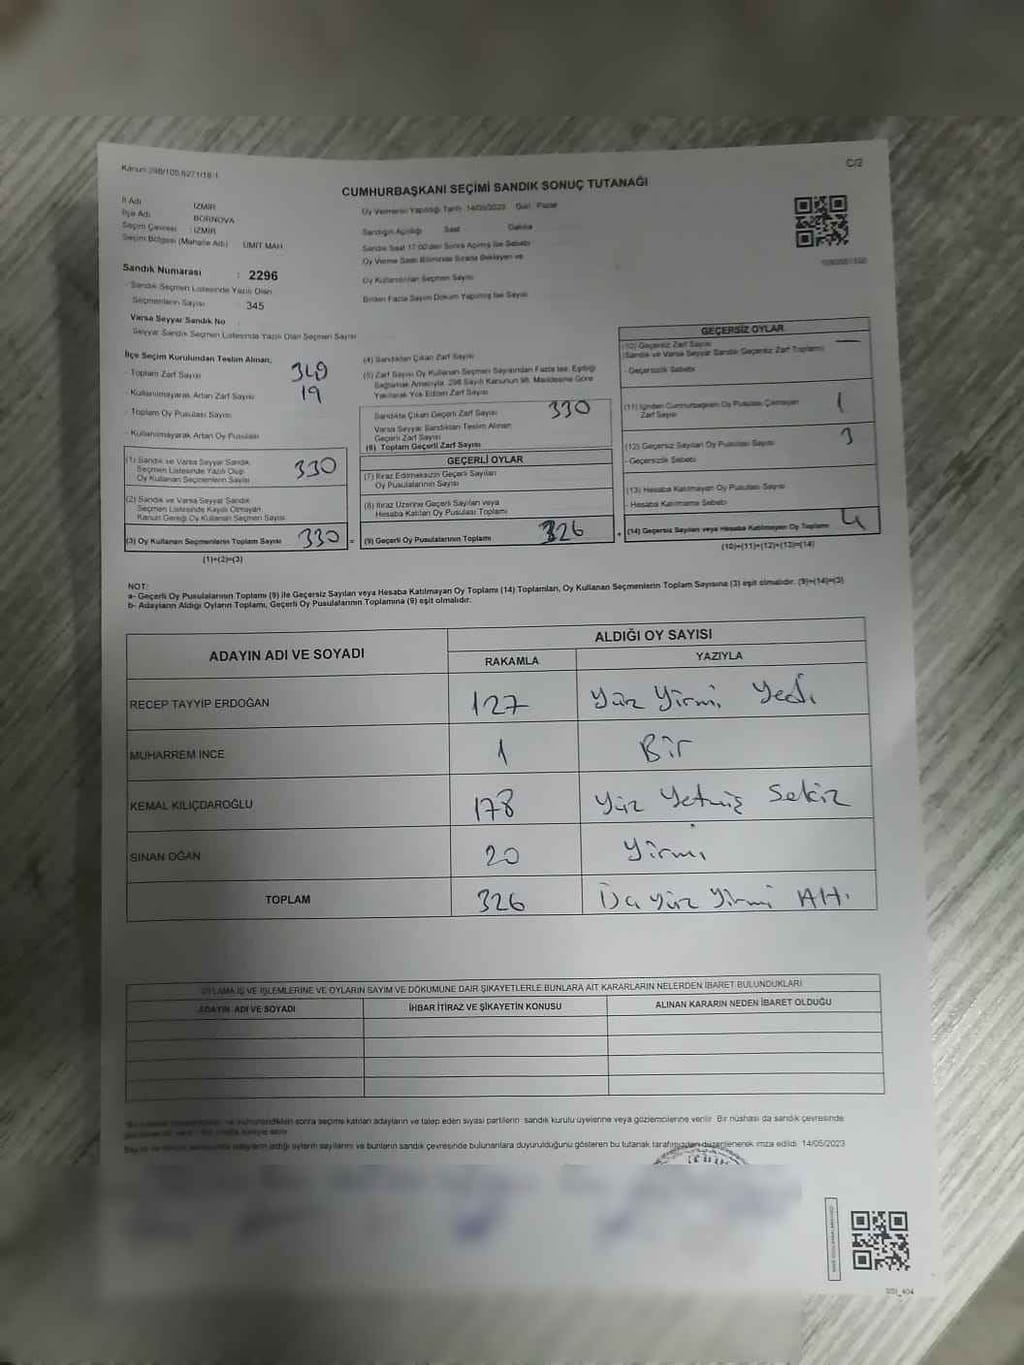 Kanun 298/105,6271/18-1
C/2
CUMHURBAŞKANI SEÇİMİ SANDIK SONUÇ TUTANAĞI
İl Adı İZMİR
İlçe Adı BORNOVA
Seçim Çevresi : İZMİR
Seçim Bölgesi (Mahalle Adı) ÜMİT MAH
Sandık Numarası : 2296
- Sandık Seçmen Listesinde Yazılı Olan
Seçmenlerin Sayısı 345
Varsa Seyyar Sandık No
Seyyar Sandık Seçmen Listesinde Yazılı Olan Seçmen Sayısı
Oy Vermenin Yapıldığı Tarih 14/05/2023 Gün Pazar
Sandığın Açıldığı Saat Dakika
Sandık Saat 17:00'den Sonra Açılmış İse Sebebi
Oy Verme Saati Bitiminde Sırada Bekleyen ve
Oy Kullandırılan Seçmen Sayısı
Birden Fazla Sayım Döküm Yapılmış İse Sayısı
İlçe Seçim Kurulundan Teslim Alınan;
- Toplam Zarf Sayısı
- Kullanılmayarak Artan Zarf Sayısı 19
- Toplam Oy Pusulası Sayısı
- Kullanılmayarak Artan Oy Pusulası
(1) Sandık ve Varsa Seyyar Sandık
Seçmen Listesinde Yazılı Olup
Oy Kullanan Seçmenlerin Sayısı 330
(2) Sandık ve Varsa Seyyar Sandık
Seçmen Listesinde Kayıtlı Olmayan
Kanun Gereği Oy Kullanan Seçmen Sayısı
(3) Oy Kullanan Seçmenlerin Toplam Sayısı 330 =
(1)+(2)=(3)
(4) Sandıktan Çıkan Zarf Sayısı
(5) Zarf Sayısı Oy Kullanan Seçmen Sayısından Fazla İse, Eşitliği
Sağlamak Amacıyla, 298 Sayılı Kanunun 98. Maddesine Göre
Yakılarak Yok Edilen Zarf Sayısı
Sandıkta Çıkan Geçerli Zarf Sayısı 330
Varsa Seyyar Sandıktan Teslim Alınan
Geçerli Zarf Sayısı
(6) Toplam Geçerli Zarf Sayısı
GEÇERLİ OYLAR
(7) İtiraz Edilmeksizin Geçerli Sayılan
Oy Pusulalarının Sayısı
(8) İtiraz Üzerine Geçerli Sayılan veya
Hesaba Katılan Oy Pusulası Toplamı
(9) Geçerli Oy Pusulalarının Toplamı 326 +
GEÇERSİZ OYLAR
(10) Geçersiz Zarf Sayısı —
(Sandık ve Varsa Seyyar Sandık Geçersiz Zarf Toplamı)
- Geçersizlik Sebebi
(11) İçinden Cumhurbaşkanı Oy Pusulası Çıkmayan
Zarf Sayısı 1
(12) Geçersiz Sayılan Oy Pusulası Sayısı 3
- Geçersizlik Sebebi
(13) Hesaba Katılmayan Oy Pusulası Sayısı
- Hesaba Katılmama Sebebi
(14) Geçersiz Sayılan veya Hesaba Katılmayan Oy Toplamı 4
(10)+(11)+(12)+(13)=(14)
NOT:
a- Geçerli Oy Pusulalarının Toplamı (9) ile Geçersiz Sayılan veya Hesaba Katılmayan Oy Toplamı (14) Toplamları, Oy Kullanan Seçmenlerin Toplam Sayısına (3) eşit olmalıdır. (9)+(14)=(3)
b- Adayların Aldığı Oyların Toplamı, Geçerli Oy Pusulalarının Toplamına (9) eşit olmalıdır.
ADAYIN ADI VE SOYADI
ALDIĞI OY SAYISI
RAKAMLA YAZIYLA
RECEP TAYYİP ERDOĞAN 127 Yüz Yirmi Yedi
MUHARREM İNCE 1 Bir
KEMAL KILIÇDAROĞLU 178 Yüz Yetmiş Sekiz
SİNAN OĞAN 20 Yirmi
TOPLAM 326 Üç yüz Yirmi Altı
OYLAMA İŞ VE İŞLEMLERİNE VE OYLARIN SAYIM VE DÖKÜMÜNE DAİR ŞİKAYETLERLE BUNLARA AİT KARARLARIN NELERDEN İBARET BULUNDUKLARI
ADAYIN ADI VE SOYADI İHBAR İTİRAZ VE ŞİKAYETİN KONUSU ALINAN KARARIN NEDEN İBARET OLDUĞU
sonra seçime katılan adayların ve talep eden siyasi partilerin sandık kurulu üyelerine veya gözlemcilerine verilir. Bir nüshası da sandık çevresinde
adayların aldığı oyların sayılarını ve bunların sandık çevresinde bulunanlara duyurulduğunu gösteren bu tutanak tarafımızdan düzenlenerek imza edildi. 14/05/2023